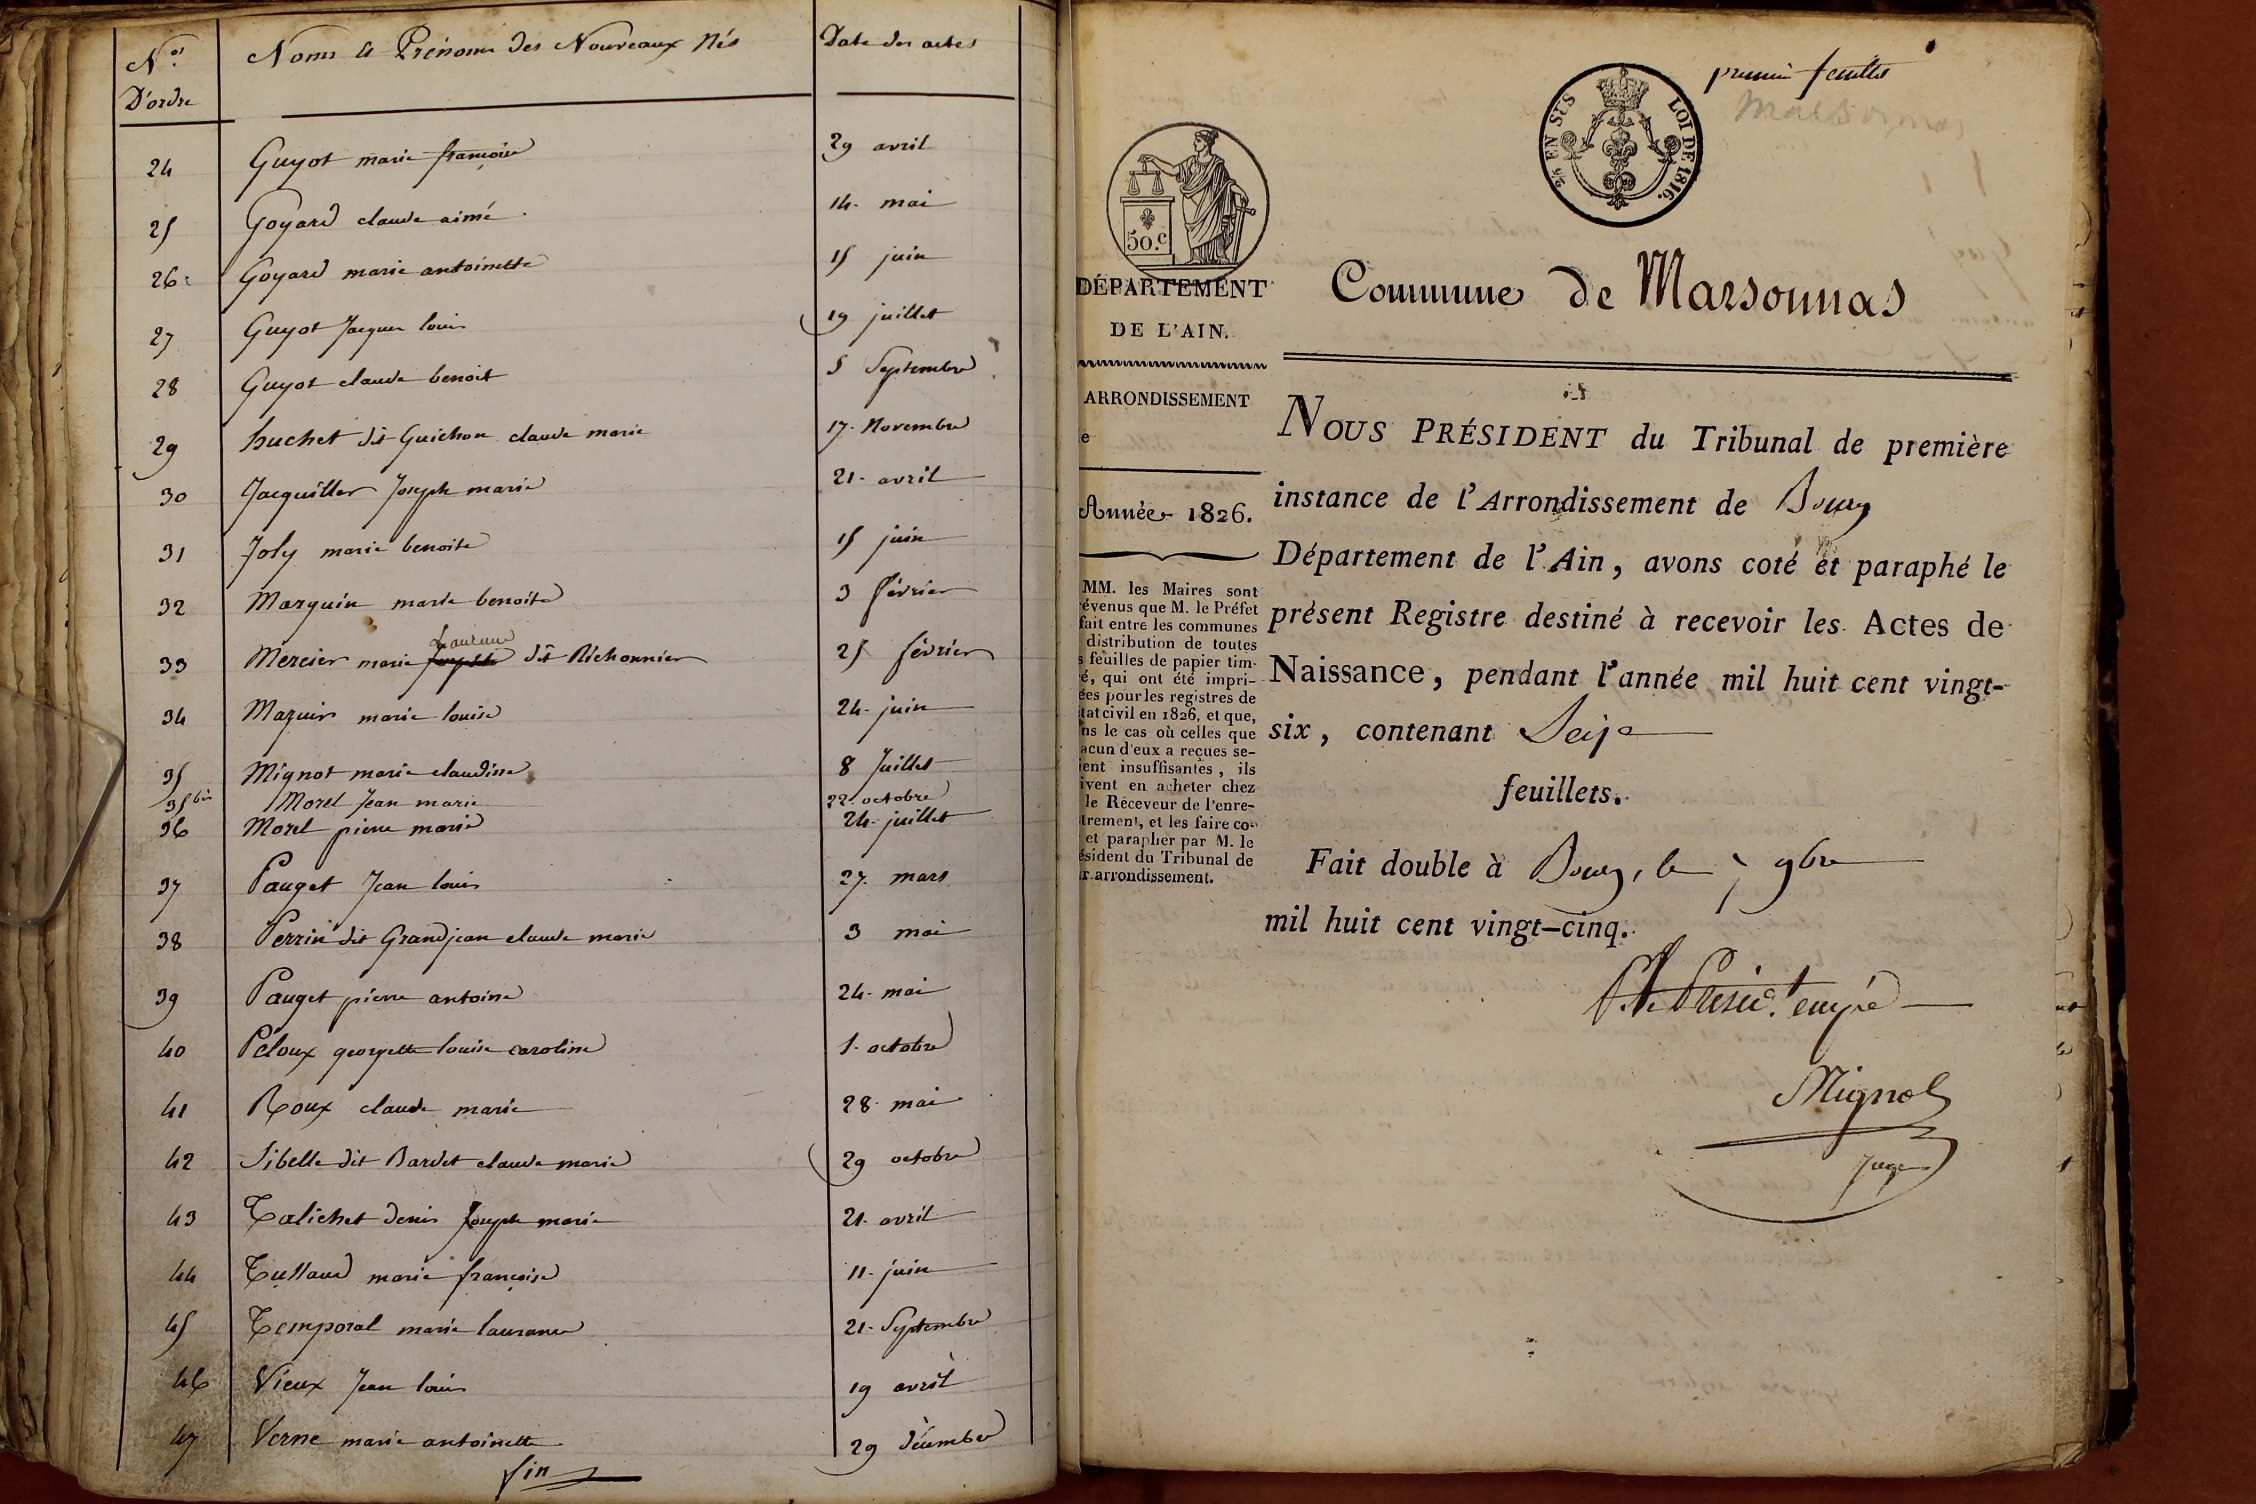 Nos D'ordre Noms & Prénoms des Nouveaux Nés Date des actes
24 Guyot marie françoise 29 avril
25 Goyard claude aimé 14. mai
26 Goyard marie antoinette 15 juin
27 Guyot Jacques louis 19 juillet
28 Guyot claude benoit 5 Septembre
29 huchet dit Guichon claude marie 17. Novembre
30 Jacquiller Joseph marie 21. avril
31 Joly marie benoite 15 juin
32 Marguin marie benoite 3 février
Laurence
33 Mercier marie josephte dit Richonnier 25 février
34 Mazuir marie louise 24. juin
35 Mignot marie claudine 8 Juillet
35 bis Morel Jean marie 22. octobre
36 Morel pierre marie 24. juillet
37 Pauget Jean louis 27. mars
38 Perrin dit Grandjean claude marie 3 mai
39 Pauget pierre antoine 24. mai
40 Péloux georgette louise caroline 1. octobre
41 Roux claude marie 28. mai
42 Sibelle dit Bardet claude marie 29 octobre
43 Talichet denis Joseph marie 21. avril
44 marie françoise 11. juin
45 Temporal marie laurance 21. Septembre
46 Vieux Jean louis 19 avril
47 Verne marie antoinette 29 décembre
fin
premier feuillet
Marsonnas
EN SUS LOI DE 1816.
50.c
DÉPARTEMENT
DE L'AIN.
Commune de Marsonnas
ARRONDISSEMENT
e
Année 1826.
MM. les Maires sont
évenus que M. le Préfet
fait entre les communes
distribution de toutes
s feuilles de papier tim-
é, qui ont été impri-
ées pour les registres de
tat civil en 1826, et que,
ns le cas où celles que
acun d'eux a reçues se-
ient insuffisantes, ils
ivent en acheter chez
le Réceveur de l'enre-
trement, et les faire co-
et parapher par M. le
ésident du Tribunal de
r arrondissement.
NOUS PRÉSIDENT du Tribunal de première
instance de l'Arrondissement de Bourg
Département de l'Ain, avons coté et paraphé le
présent Registre destiné à recevoir les Actes de
Naissance, pendant l'année mil huit cent vingt-
six, contenant Seize
feuillets.
Fait double à Bourg, le 7 9bre
mil huit cent vingt-cinq.
P. le Présid.t empé
Mignot
Juge